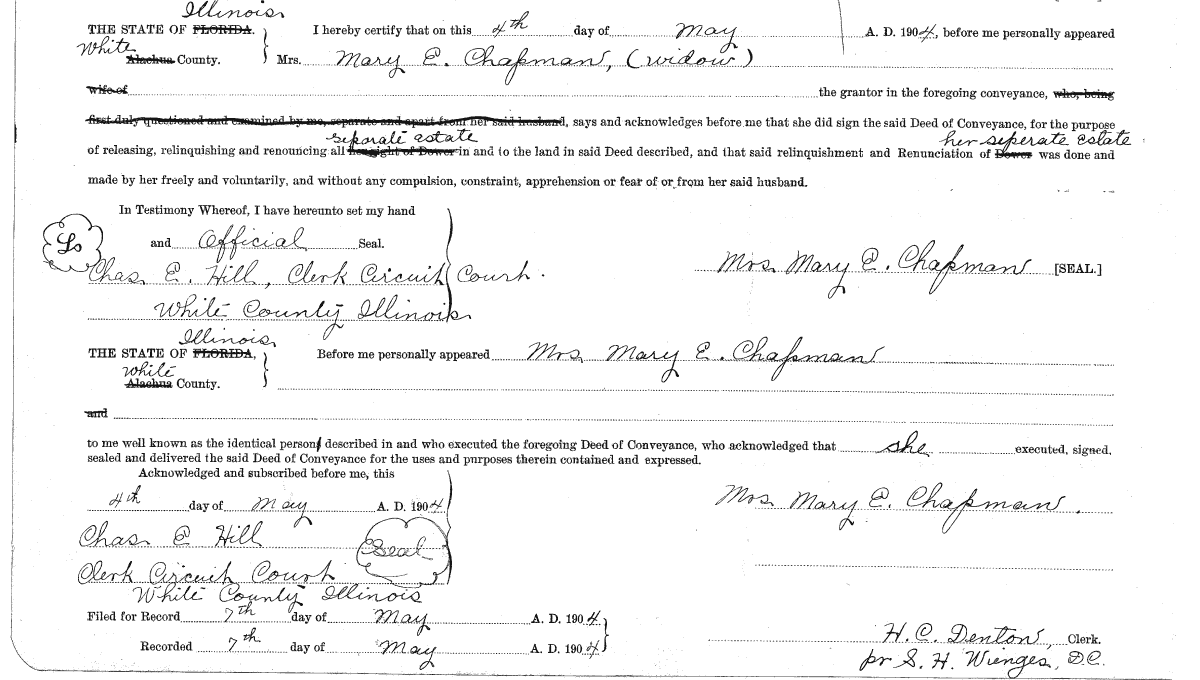 Illinois
THE STATE OF FLORIDA. I hereby certify that on this 4th day of May A. D. 1904, before me personally appeared
White
Alachua County. Mrs. Mary E. Chapman, (widow)
wife of the grantor in the foregoing conveyance, who, being
first duly questioned and examined by me, separate and apart from her said husband, says and acknowledges before me that she did sign the said Deed of Conveyance, for the purpose
separate estate her seperate estate
of releasing, relinquishing and renouncing all her right of Dower in and to the land in said Deed described, and that said relinquishment and Renunciation of Dower was done and
made by her freely and voluntarily, and without any compulsion, constraint, apprehension or fear of or from her said husband.
In Testimony Whereof, I have hereunto set my hand
and Official Seal.
Ls
Chas E. Hill, Clerk Circuit Court. Mrs Mary E. Chapman [SEAL.]
White County Illinois
Illinois
THE STATE OF FLORIDA, Before me personally appeared Mrs Mary E. Chapman
White
Alachua County.
and
to me well known as the identical person described in and who executed the foregoing Deed of Conveyance, who acknowledged that she executed, signed,
sealed and delivered the said Deed of Conveyance for the uses and purposes therein contained and expressed.
Acknowledged and subscribed before me, this
4th day of May A. D. 1904 Mrs Mary E. Chapman.
Chas E Hill Seal
Clerk Circuit Court
White County Illinois
Filed for Record 7th day of May A. D. 1904
Recorded 7th day of May A. D. 1904 H. C. Denton, Clerk.
pr S. H. Wienges, D.C.